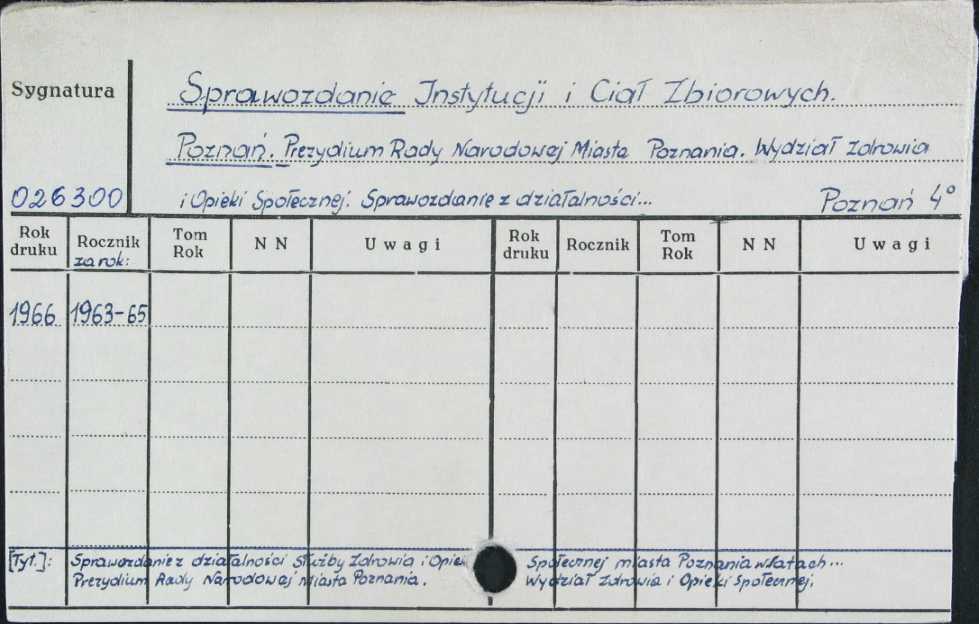 Sygnatura
Sprawozdanie Instytucji i Ciał Zbiorowych.
Poznań. Prezydium Rady Narodowej Miasta Poznania. Wydział Zdrowia
026300 i Opieki Społecznej. Sprawozdanie z działalności... Poznań 4°
Rok druku Rocznik za rok: Tom Rok N N Uwagi Rok druku Rocznik Tom Rok N N Uwagi
1966 1963-65
[Tyt.]: Sprawozdanie z działalności Służby Zdrowia i Opieki Społecznej miasta Poznania w latach...
Prezydium Rady Narodowej Miasta Poznania. Wydział Zdrowia i Opieki Społecznej.